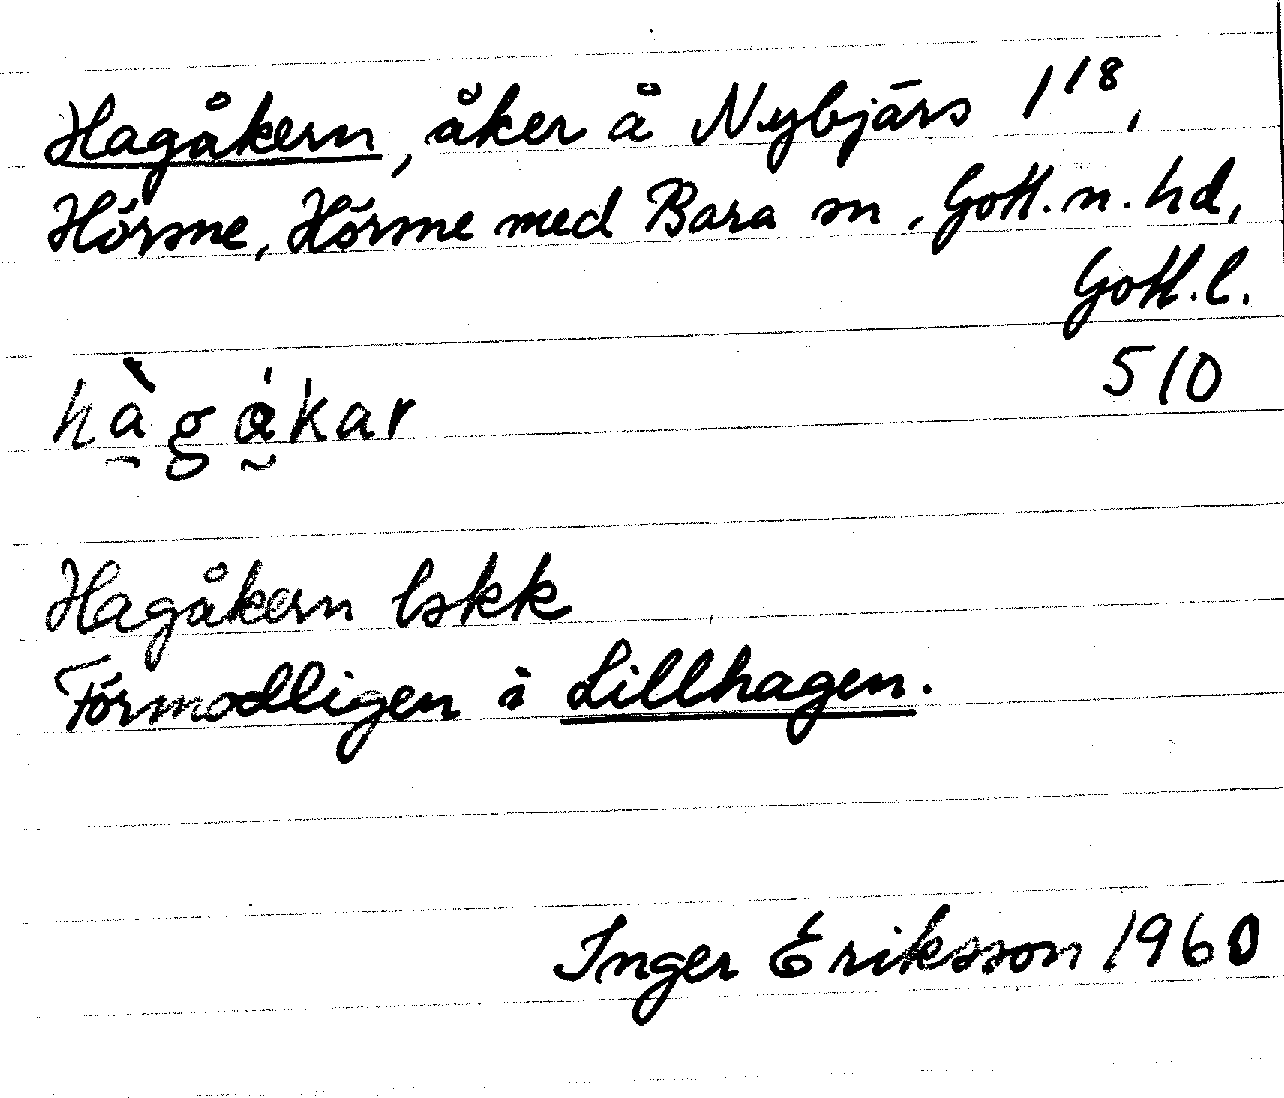 Hagåkern, åker å Nybjärs 1¹⁸,
Hörsne, Hörsne med Bara sn, Gotl. n. hd,
Gotl. l.
510
hàgákar
Hagåkern lskk
Förmodligen i Lillhagen.
Inger Eriksson 1960